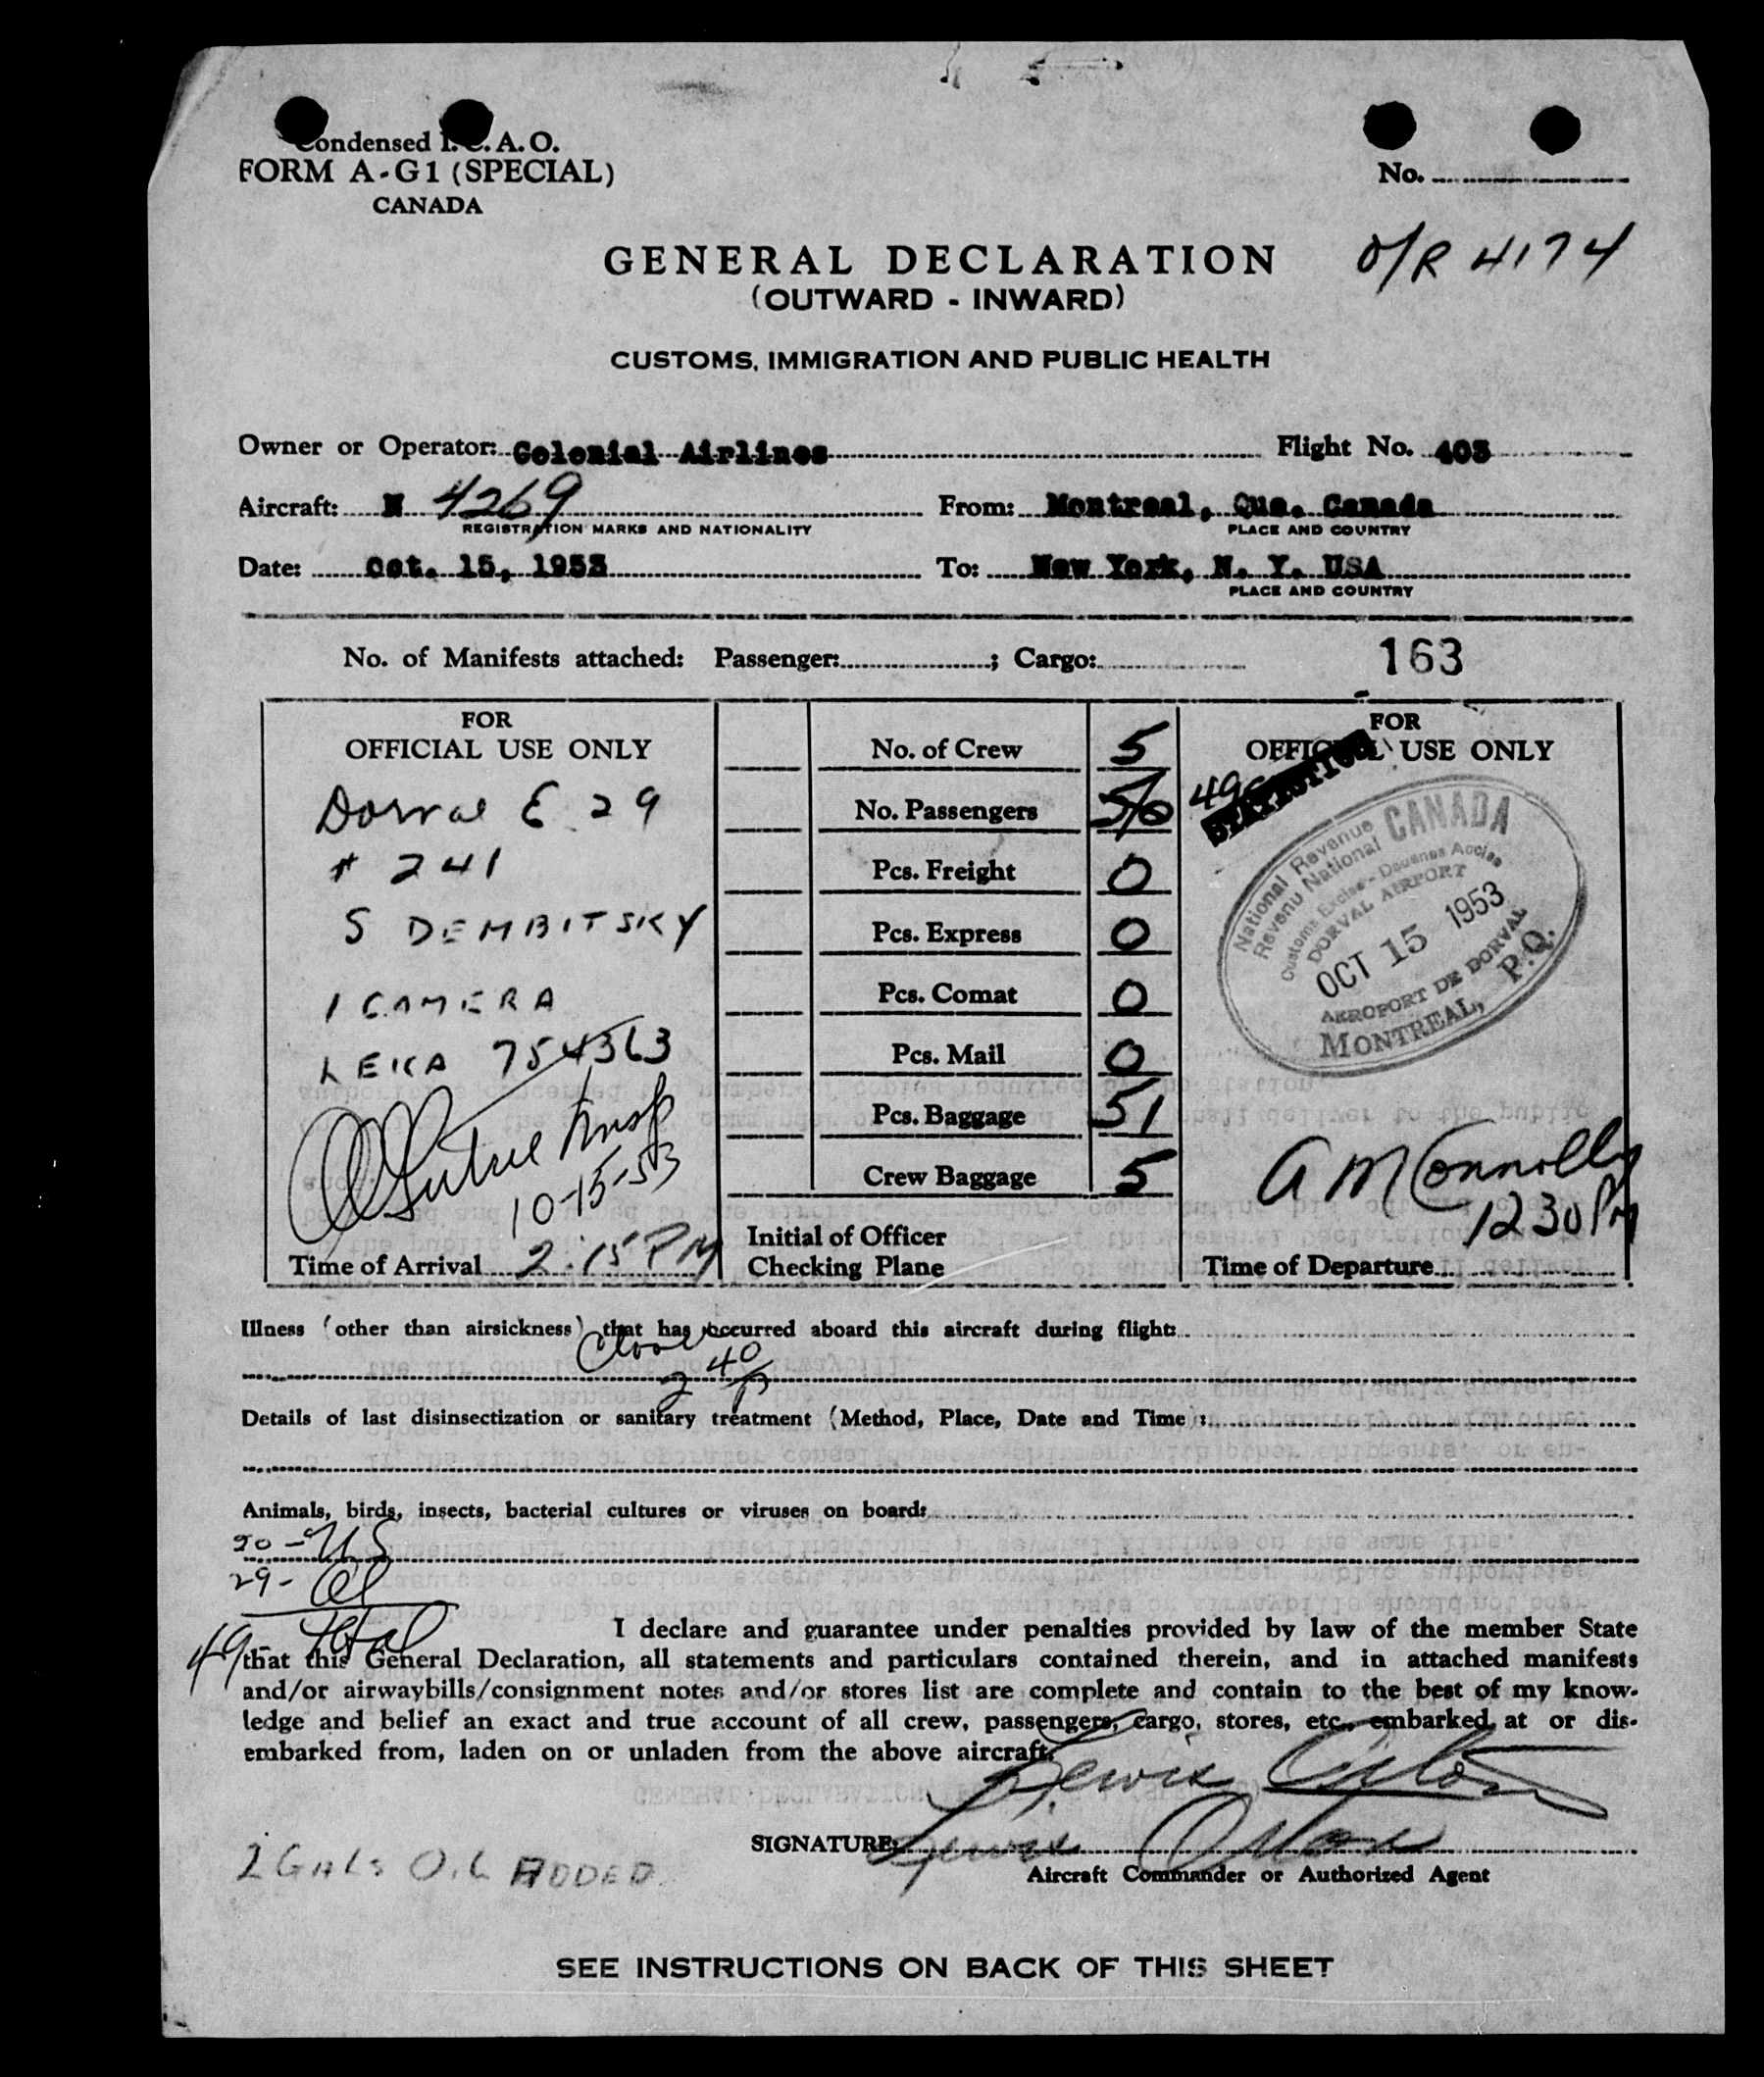 Condensed I.C.A.O.
FORM A-G1 (SPECIAL)
CANADA
No.
O/R 4174
GENERAL DECLARATION
(OUTWARD - INWARD)
CUSTOMS, IMMIGRATION AND PUBLIC HEALTH
Owner or Operator: Colonial Airlines Flight No. 403
Aircraft: N 4269 From: Montreal, Que. Canada
REGISTRATION MARKS AND NATIONALITY PLACE AND COUNTRY
Date: Oct. 15, 1953 To: New York, N. Y. USA
PLACE AND COUNTRY
No. of Manifests attached: Passenger: ; Cargo: 163
FOR
OFFICIAL USE ONLY
Dorval E 29
# 241
S DEMBITSKY
1 CAMERA
LEICA 754363
Insp
10-15-53
Time of Arrival 2:15 PM
No. of Crew 5
No. Passengers 50
Pcs. Freight 0
Pcs. Express 0
Pcs. Comat 0
Pcs. Mail 0
Pcs. Baggage 51
Crew Baggage 5
Initial of Officer
Checking Plane
FOR
OFFICIAL USE ONLY
49
STATISTICS
National Revenue CANADA
Revenu National
Customs Excise - Douanes Accise
DORVAL AIRPORT
OCT 15 1953
AEROPORT DE DORVAL
MONTREAL, P.Q.
A M Connolly
12 30 PM
Time of Departure
Illness (other than airsickness) that has occurred aboard this aircraft during flight:
2 40 P
Details of last disinsectization or sanitary treatment (Method, Place, Date and Time):
Animals, birds, insects, bacterial cultures or viruses on board:
20 - US
29 -
49 - Total
I declare and guarantee under penalties provided by law of the member State
that this General Declaration, all statements and particulars contained therein, and in attached manifests
and/or airwaybills/consignment notes and/or stores list are complete and contain to the best of my know-
ledge and belief an exact and true account of all crew, passengers, cargo, stores, etc., embarked at or dis-
embarked from, laden on or unladen from the above aircraft.
Lewis
SIGNATURE: Lewis
Aircraft Commander or Authorized Agent
2 GALS OIL ADDED
SEE INSTRUCTIONS ON BACK OF THIS SHEET